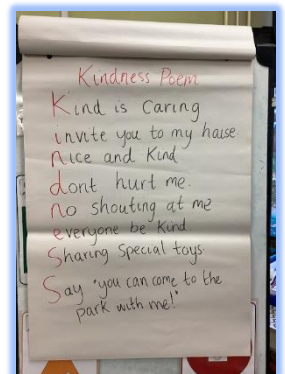 Kindness Poem
Kind is Caring
invite you to my house
nice and Kind
dont hurt me.
no shouting at me
everyone be Kind
Sharing Special toys.
Say "you can come to the
park with me!"